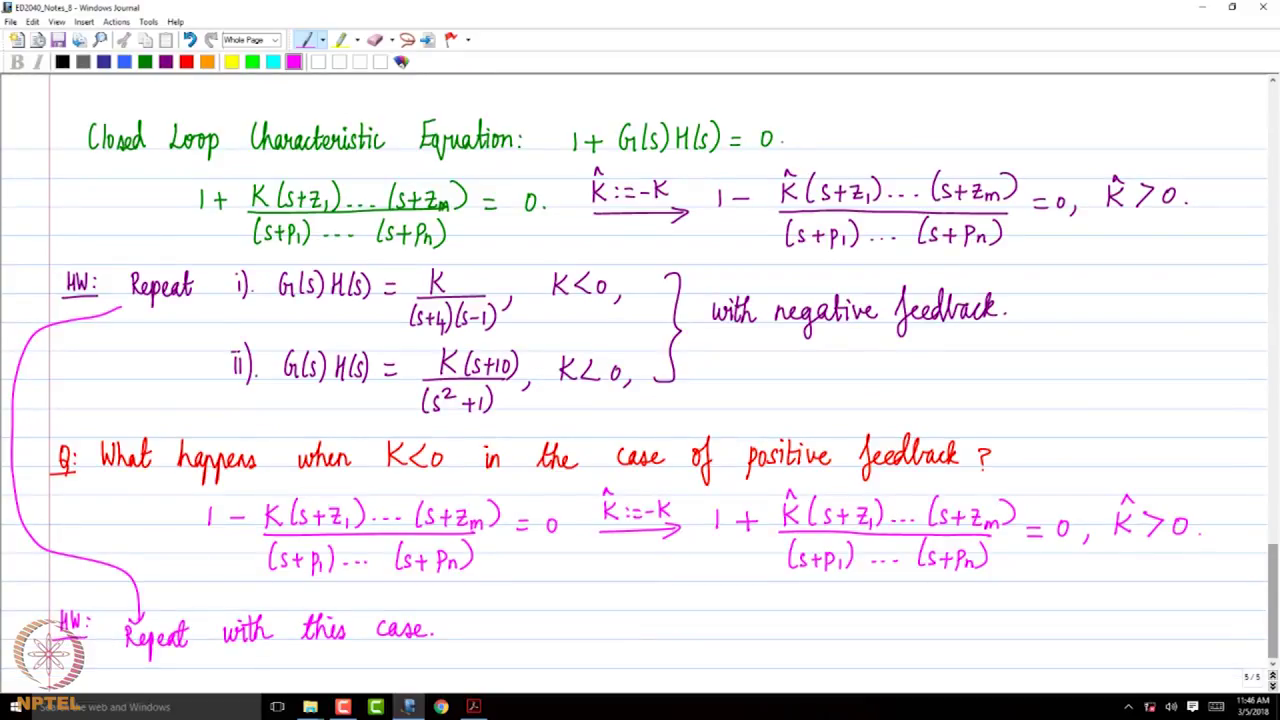 ED2040_Notes_8 - Windows Journal
File Edit View Insert Actions Tools Help
Whole Page
B I
Closed Loop Characteristic Equation: 1 + G(s)H(s) = 0.
1 + K(s+z₁)...(s+zₘ) / (s+p₁)...(s+pₙ) = 0. K̂ := -K → 1 - K̂(s+z₁)...(s+zₘ) / (s+p₁)...(s+pₙ) = 0, K̂ > 0.
HW: Repeat i). G(s)H(s) = K / (s+4)(s-1), K<0,
with negative feedback.
ii). G(s)H(s) = K(s+10) / (s²+1), K<0,
Q: What happens when K<0 in the case of positive feedback?
1 - K(s+z₁)...(s+zₘ) / (s+p₁)...(s+pₙ) = 0 K̂ := -K → 1 + K̂(s+z₁)...(s+zₘ) / (s+p₁)...(s+pₙ) = 0, K̂ > 0.
HW: Repeat with this case.
5 / 5
NPTEL
Search the web and Windows
11:46 AM
3/5/2018